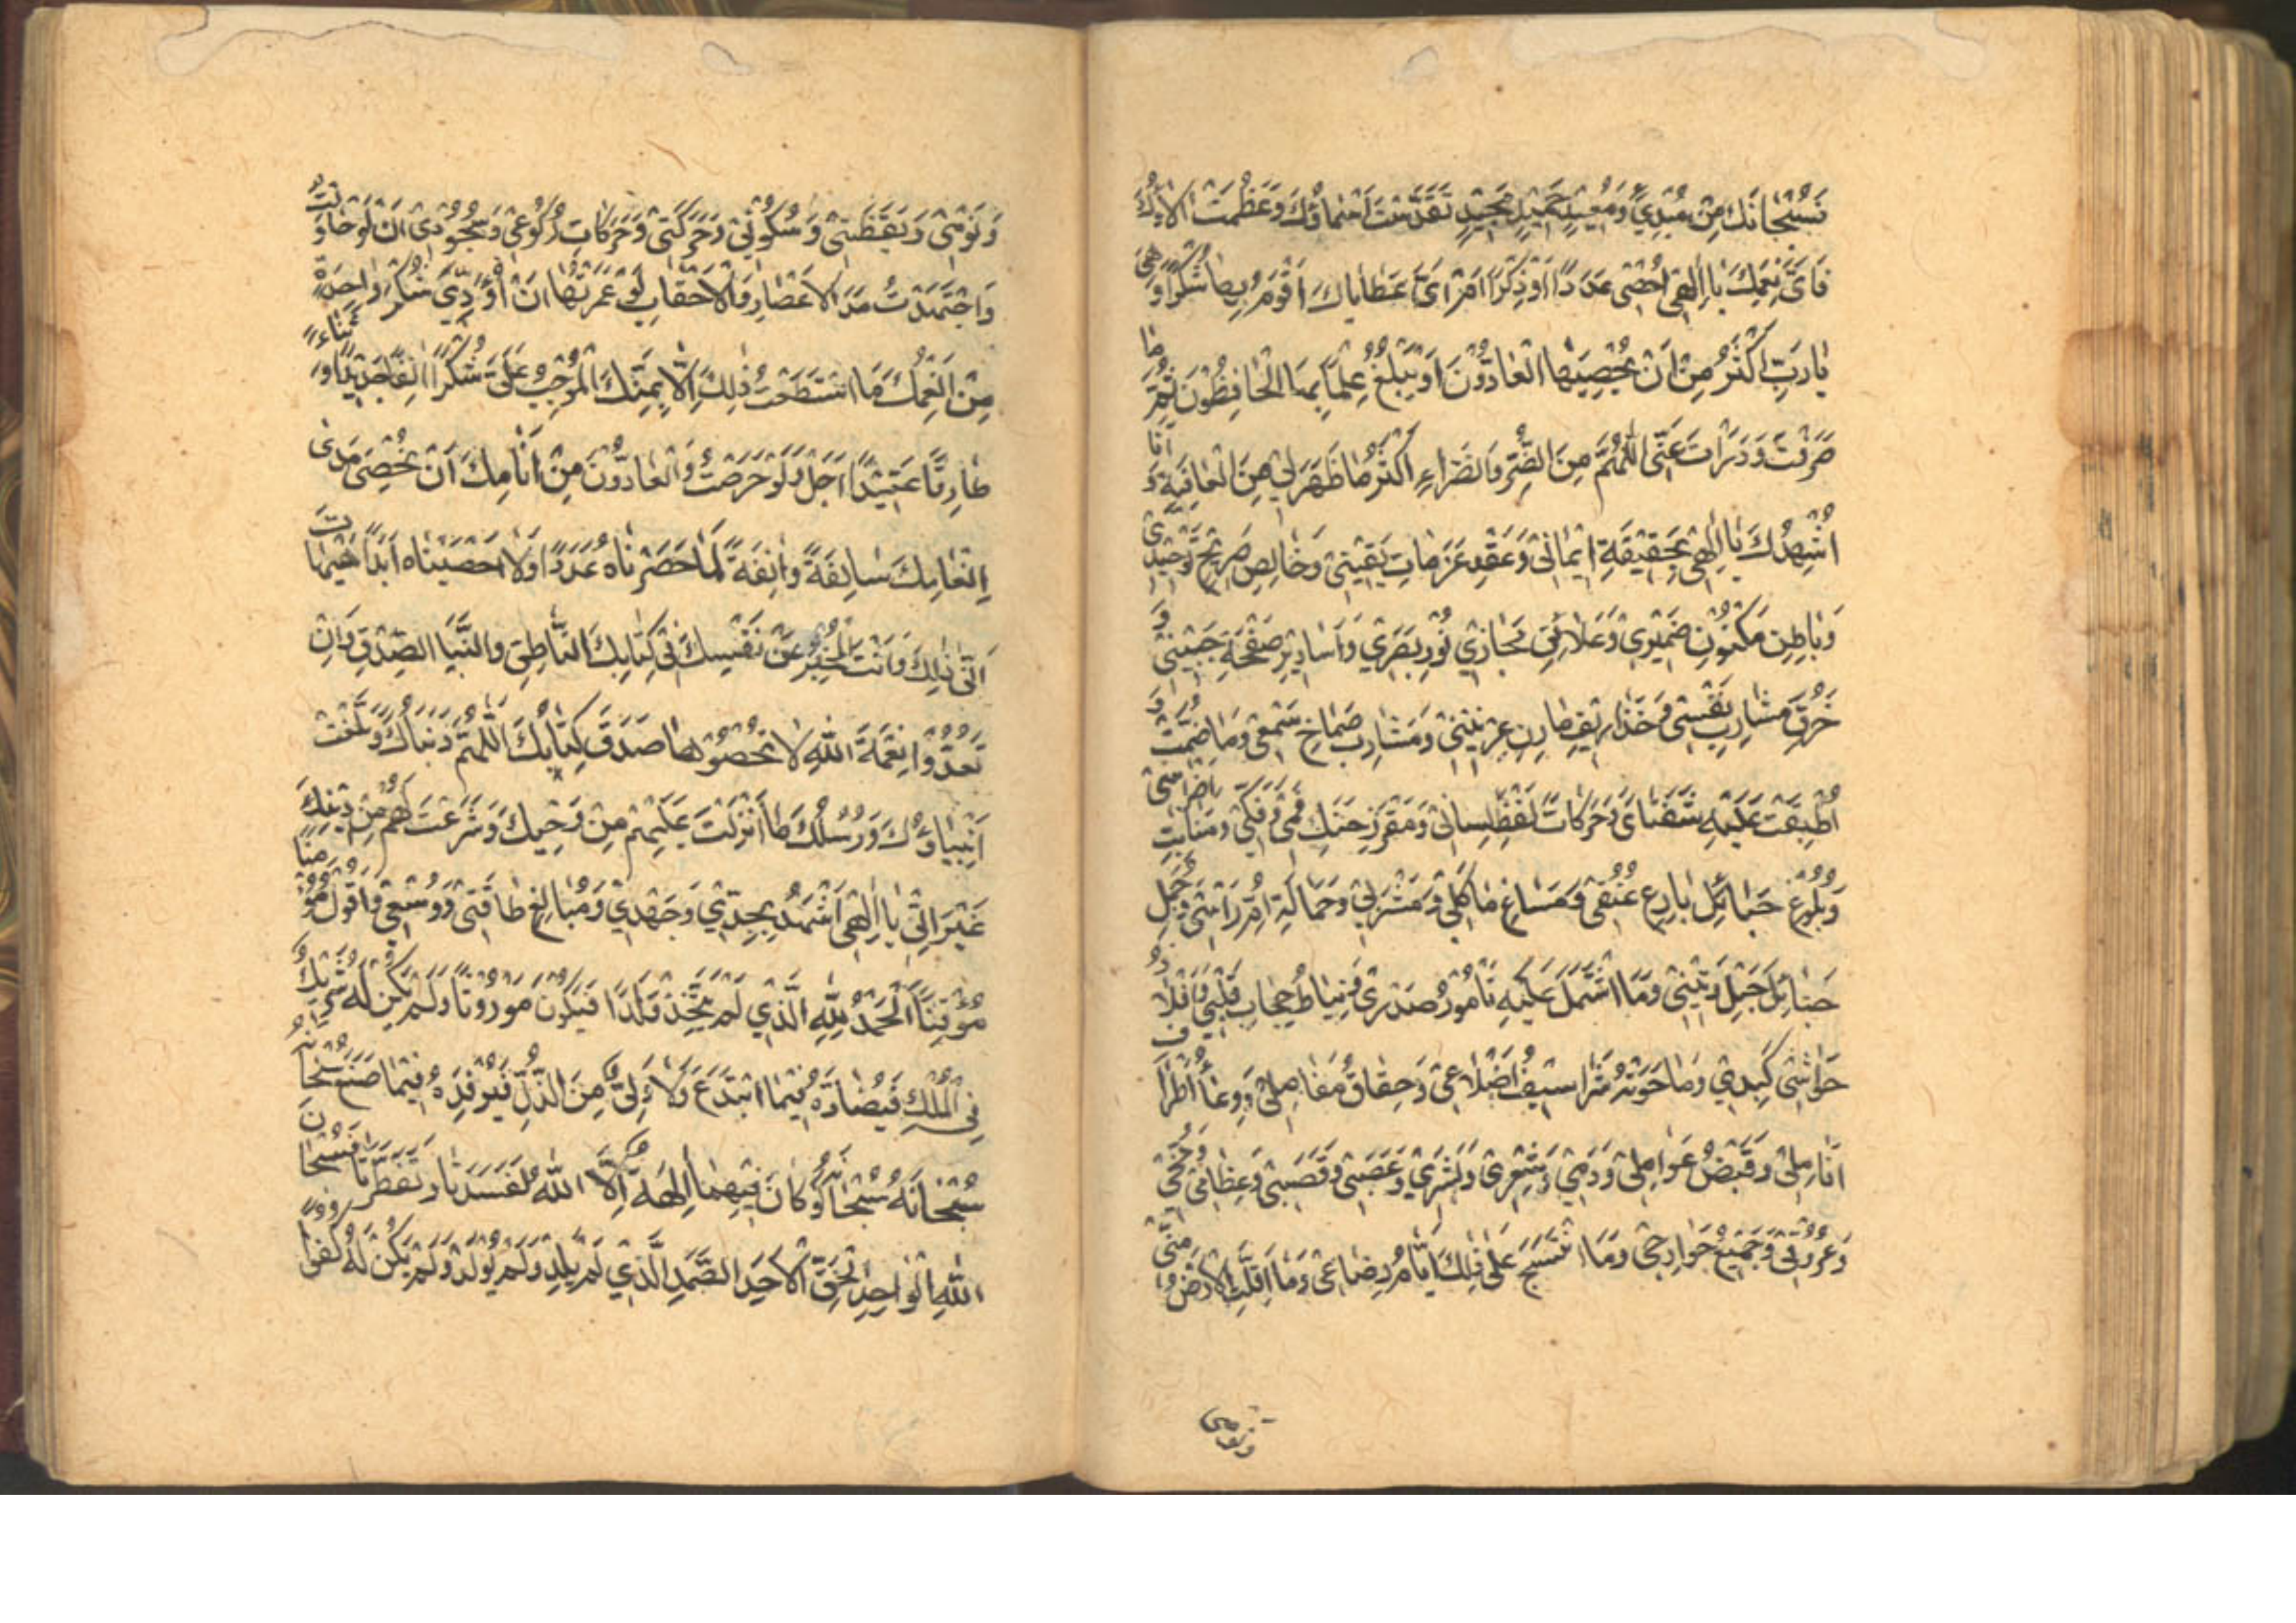 فَسُبْحانَكَ مِنْ مُبْدِئٍ وَمُعِيدٍ حَمِيدٍ مَجِيدٍ تَقَدَّسَتْ اَسْماؤُكَ وَعَظُمَتْ الاۤؤُكَ
فَاَىَّ نِعَمِكَ يا اِلهى اُحْصى عَدَدًا اَوْ ذِكْرًا اَمْ اَىَّ عَطاياكَ اَقُومُ بِها شُكْرًا وَهِىَ
يا رَبِّ اَكْثَرُ مِنْ اَنْ يُحْصِيَهَا الْعادُّونَ اَوْ يَبْلُغَ عِلْمًا بِهَا الْحافِظُونَ ثُمَّ ما
صَرَفْتَ وَدَرَأْتَ عَنِّى اللّهُمَّ مِنَ الضُّرِّ وَالضَّرّاءِ اَكْثَرُ مِمّا ظَهَرَ لِى مِنَ الْعافِيَةِ وَ اَنَا
اُشْهِدُكَ يا اِلهى بِحَقِيقَةِ ايمانى وَعَقْدِ عَزَماتِ يَقِينى وَخالِصِ صَرِيحِ تَوْحِيدى
وَباطِنِ مَكْنُونِ ضَمِيرى وَعَلائِقِ مَجارِي نُورِ بَصَرِي وَاَسارِيرِ صَفْحَةِ جَبِينى وَ
خُرْقِ مَشارِبِ نَفْسى وَخَذارِيفِ مارِنِ عِرْنِينى وَمَشارِبِ صِماخِ سَمْعى وَما ضُمَّتْ وَ
اَطْبَقَتْ عَلَيْهِ شَفَتاىَ وَحَرَكاتِ لَفْظِ لِسانى وَمَغْرَزِ حَنَكِ فَمى وَفَكّى وَمَنابِتِ اَضْراسى
وَبُلُوغِ حَبائِلِ بارِعِ عُنُقى وَمَساغِ مَأْكَلى وَمَشْرَبى وَحَمالَةِ اُمِّ رَأْسى وَجُمَلِ
حَبائِلِ حَبْلِ وَتينى وَمَا اشْتَمَلَ عَلَيْهِ تامُورُ صَدْرى وَنِياطُ حِجابِ قَلْبى وَاَفْلاذُ
حَواشى كَبِدي وَما حَوَتْهُ شَراسيفُ اَضْلاعى وَحِقاقُ مَفاصِلى وَ اَطْرافُ
اَنامِلى وَقَبْضُ عَوامِلى وَدَمى وَشَعْرى وَبَشَرى وَعَصَبى وَقَصَبى وَعِظامى وَمُخّى
وَعُرُوقى وَجَمِيعُ جَوارِحى وَمَا انْتَسَجَ عَلى ذلِكَ اَيّامُ رِضاعى وَما اَقَلَّتِ الْاَرْضُ مِنّى
وَنَوْمى
وَنَوْمى وَيَقْظَتى وَسُكُونى وَحَرَكَتى وَحَرَكاتِ رُكُوعى وَسُجُودى اَنْ لَوْ حاوَلْتُ
وَاجْتَهَدْتُ مَدَى الْاَعْصارِ وَالْاَحْقابِ لَوْ عُمِّرْتُها اَنْ اُؤَدِّىَ شُكْرَ واحِدَةٍ
مِنْ اَنْعُمِكَ مَا اسْتَطَعْتُ ذلِكَ اِلّا بِمَنِّكَ الْمُوجِبِ عَلَىَّ شُكْرًا انِفًا جَديدًا وَ ثَناءً
طارِفًا عَتيدًا اَجَلْ وَلَوْ حَرَصْتُ وَالْعادُّونَ مِنْ اَنامِكَ اَنْ نُحْصِىَ مَدى
اِنْعامِكَ سالِفَةً وَانِفَةً لَما حَصَرْناهُ عَدَدًا وَلا اَحْصَيْناهُ اَبَدًا هَيْهاتَ
اَنّى ذلِكَ وَاَنْتَ الْمُخْبِرُ عَنْ نَفْسِكَ فى كِتابِكَ النّاطِقِ وَالنَّبَأِ الصِّدْقِ وَاِنْ
تَعُدُّوا نِعْمَةَ اللّهِ لا تُحْصُوها صَدَقَ كِتابُكَ اللّهُمَّ وَنَبَاُكَ وَبَلَّغَتْ
اَنْبِياؤُكَ وَرُسُلُكَ ما اَنْزَلْتَ عَلَيْهِمْ مِنْ وَحْيِكَ وَشَرَعْتَ لَهُمْ مِنْ دينِكَ
غَيْرَ اَنّى يا اِلهى اَشْهَدُ بِجِدّي وَجَهْدي وَمَبالِغِ طاقَتى وَوُسْعى وَاَقُولُ مُؤْمِنًا
مُوقِنًا اَلْحَمْدُ لِلّهِ الَّذي لَمْ يَتَّخِذْ وَلَدًا فَيَكُونَ مَوْرُوثًا وَلَمْ يَكُنْ لَهُ شَرِيكٌ
فِى الْمُلْكِ فَيُضادَّهُ فيمَا ابْتَدَعَ وَلا وَلِىٌّ مِنَ الذُّلِّ فَيُرْفِدَهُ فيما صَنَعَ سُبْحانَهُ
سُبْحانَهُ سُبْحانَهُ لَوْ كانَ فيهِما الِهَةٌ اِلَّا اللّهُ لَفَسَدَتا وَتَفَطَّرَتا فَسُبْحانَ
اللّهِ الْواحِدِ الْحَقِّ الْاَحَدِ الصَّمَدِ الَّذي لَمْ يَلِدْ وَلَمْ يُولَدْ وَلَمْ يَكُنْ لَهُ كُفُوًا